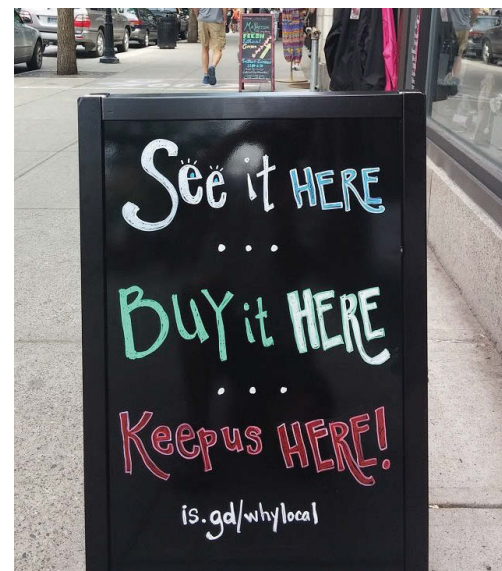 FRESH
See it HERE
...
BUY it HERE
...
Keep us HERE!
is.gd/whylocal